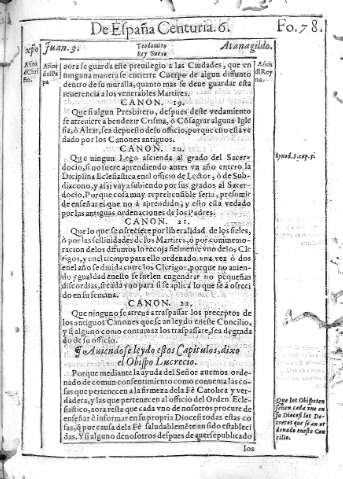 De España Centuria. 6.
Fo. 78.
Xpo
Juan. 3.
Teodomiro
Rey Suevo
Atanagildo.
Año d Rey
no.
aora se guarda este previlegio a las Ciudades, que en
ninguna manera se encierre Cuerpo de algun difunto
dentro de su muralla, quanto mas se deve guardar esta
reverencia a los venerables Martires.
CANON. 19.
Que si algun Presbitero, despues deste vedamiento
se atreviere a bendezir Crisma, ò Cósagrar alguna Igle
sia, ò Altar, sea depuesto de su oficio, porque esto està ve
dado por los Canones antiguos.
CANON. 20.
Que ningun Lego ascienda al grado del Sacer-
docio, si no fuere aprendiendo antes un año entero la
Disciplina Eclesiastica en el oficio de Lector, ò de Sub-
diacono, y assi vaya subiendo por sus grados al Sacer-
docio, Porque cosa muy reprehensible seria, presumir
de enseñar el que no à aprendido, y esto està vedado
por las antiguas ordenaciones de los Padres.
CANON. 21.
Que lo que se ofreciere por liberalidad de los fieles,
ò por las festividades de los Martires, ò por commemo-
racion de los difuntos lo recoja fielmente uno de los Cle-
rigos, y en el tiempo para ello ordenado una vez ò dos
en el año se divida entre los Clerigos, porque no avien-
do ygualdad en ello se suelen engendrar no pequeñas
discordias, si cada uno para si se aplica lo que se à ofreci-
do en su semana.
CANON. 22.
Que ninguno se atreva a traspassar los preceptos de
los antiguos Canones que se an leydo en este Concilio,
y si alguno como contumaz los traspassare, sea degrada
do de su oficio.
Aviendose leydo estos Capitulos, dixo
el Obispo Lucrecio.
Porque mediante la ayuda del Señor avemos orde-
nado de comun consentimiento como convenia las co-
sas que pertenecen a la firmeza de la Fe Catolica y ver-
dadera, y las que pertenecen al oficio del Orden Ecle-
siastico, aora resta que cada uno de nosotros procure de
enseñar è informar en su propria Diocesi todas estas co-
sas, q̃ por causa de la Fè saludablemẽte an sido estableci
das. Y si alguno de nosotros despues de aver se publicado
los
Que los Obispos en
señen cada uno en
su Diocesi los De-
cretos que se an or
denado en este Con
cilio.